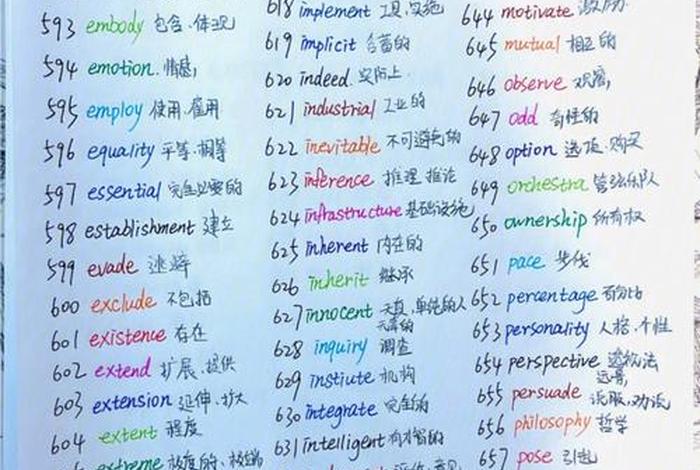 593 embody 包含、体现
594 emotion 情感
595 employ 使用、雇用
596 equality 平等、相等
597 essential 完全必要的
598 establishment 建立
599 evade 逃避
600 exclude 不包括
601 existence 存在
602 extend 扩展、提供
603 extension 延伸、扩大
604 extent 程度
extreme 极度的、极端
618 implement 工具、实施
619 implicit 含蓄的
620 indeed 实际上
621 industrial 工业的
622 inevitable 不可避免的
623 inference 推理 推论
624 infrastructure 基础设施
625 inherent 内在的
626 inherit 继承
627 innocent 天真、单纯的人
天真的
628 inquiry 调查
629 instiute 机构
630 integrate 完全的
631 intelligent 有才智的
644 motivate 激励
645 mutual 相互的
646 observe 观察
647 odd 奇怪的
648 option 选项、购买
649 orchestra 管弦乐队
650 ownership 所有权
651 pace 步伐
652 percentage 百分比
653 personality 人格、个性
654 perspective 透视法
远景
655 persuade 说服、劝说
656 philosophy 哲学
657 pose 引起